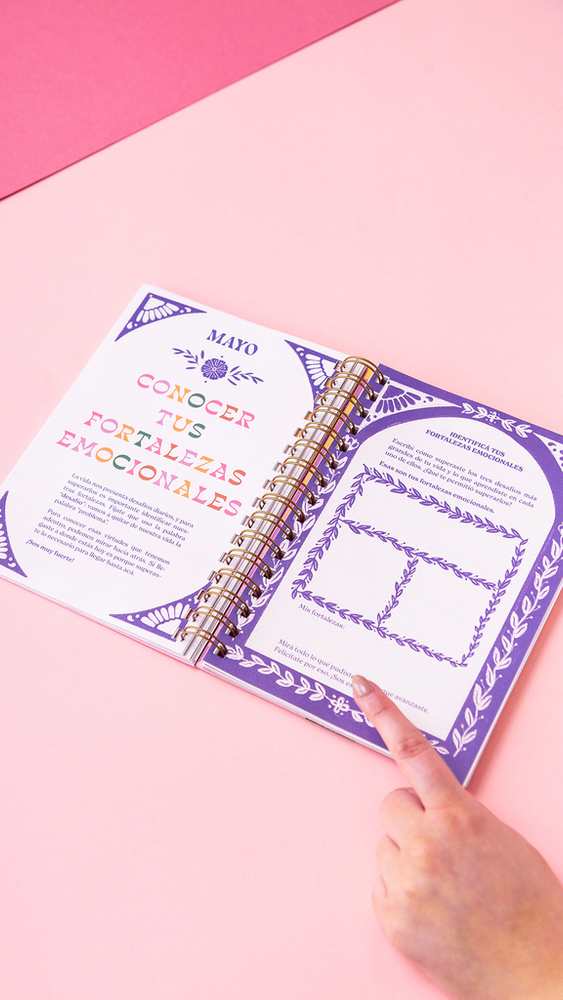 MAYO
CONOCER
TUS
FORTALEZAS
EMOCIONALES
La vida nos presenta desafíos diarios, y para
superarlos es importante identificar nues-
tras fortalezas. Fijate que uso la palabra
"desafío": vamos a quitar de nuestra vida la
palabra "problema".
Para conocer esas virtudes que tenemos
adentro, podemos mirar hacia atrás. Si lle-
gaste a donde estás hoy es porque superas-
te lo necesario para llegar hasta acá.
¡Sos muy fuerte!
IDENTIFICÁ TUS
FORTALEZAS EMOCIONALES
Escribí cómo superaste los tres desafíos más
grandes de tu vida y lo que aprendiste en cada
uno de ellos. ¿Qué te permitió superarlos?
Esas son tus fortalezas emocionales.
Mis fortalezas:
Mirá todo lo que pudiste
Felicitate por eso. ¡Sos que avanzaste.